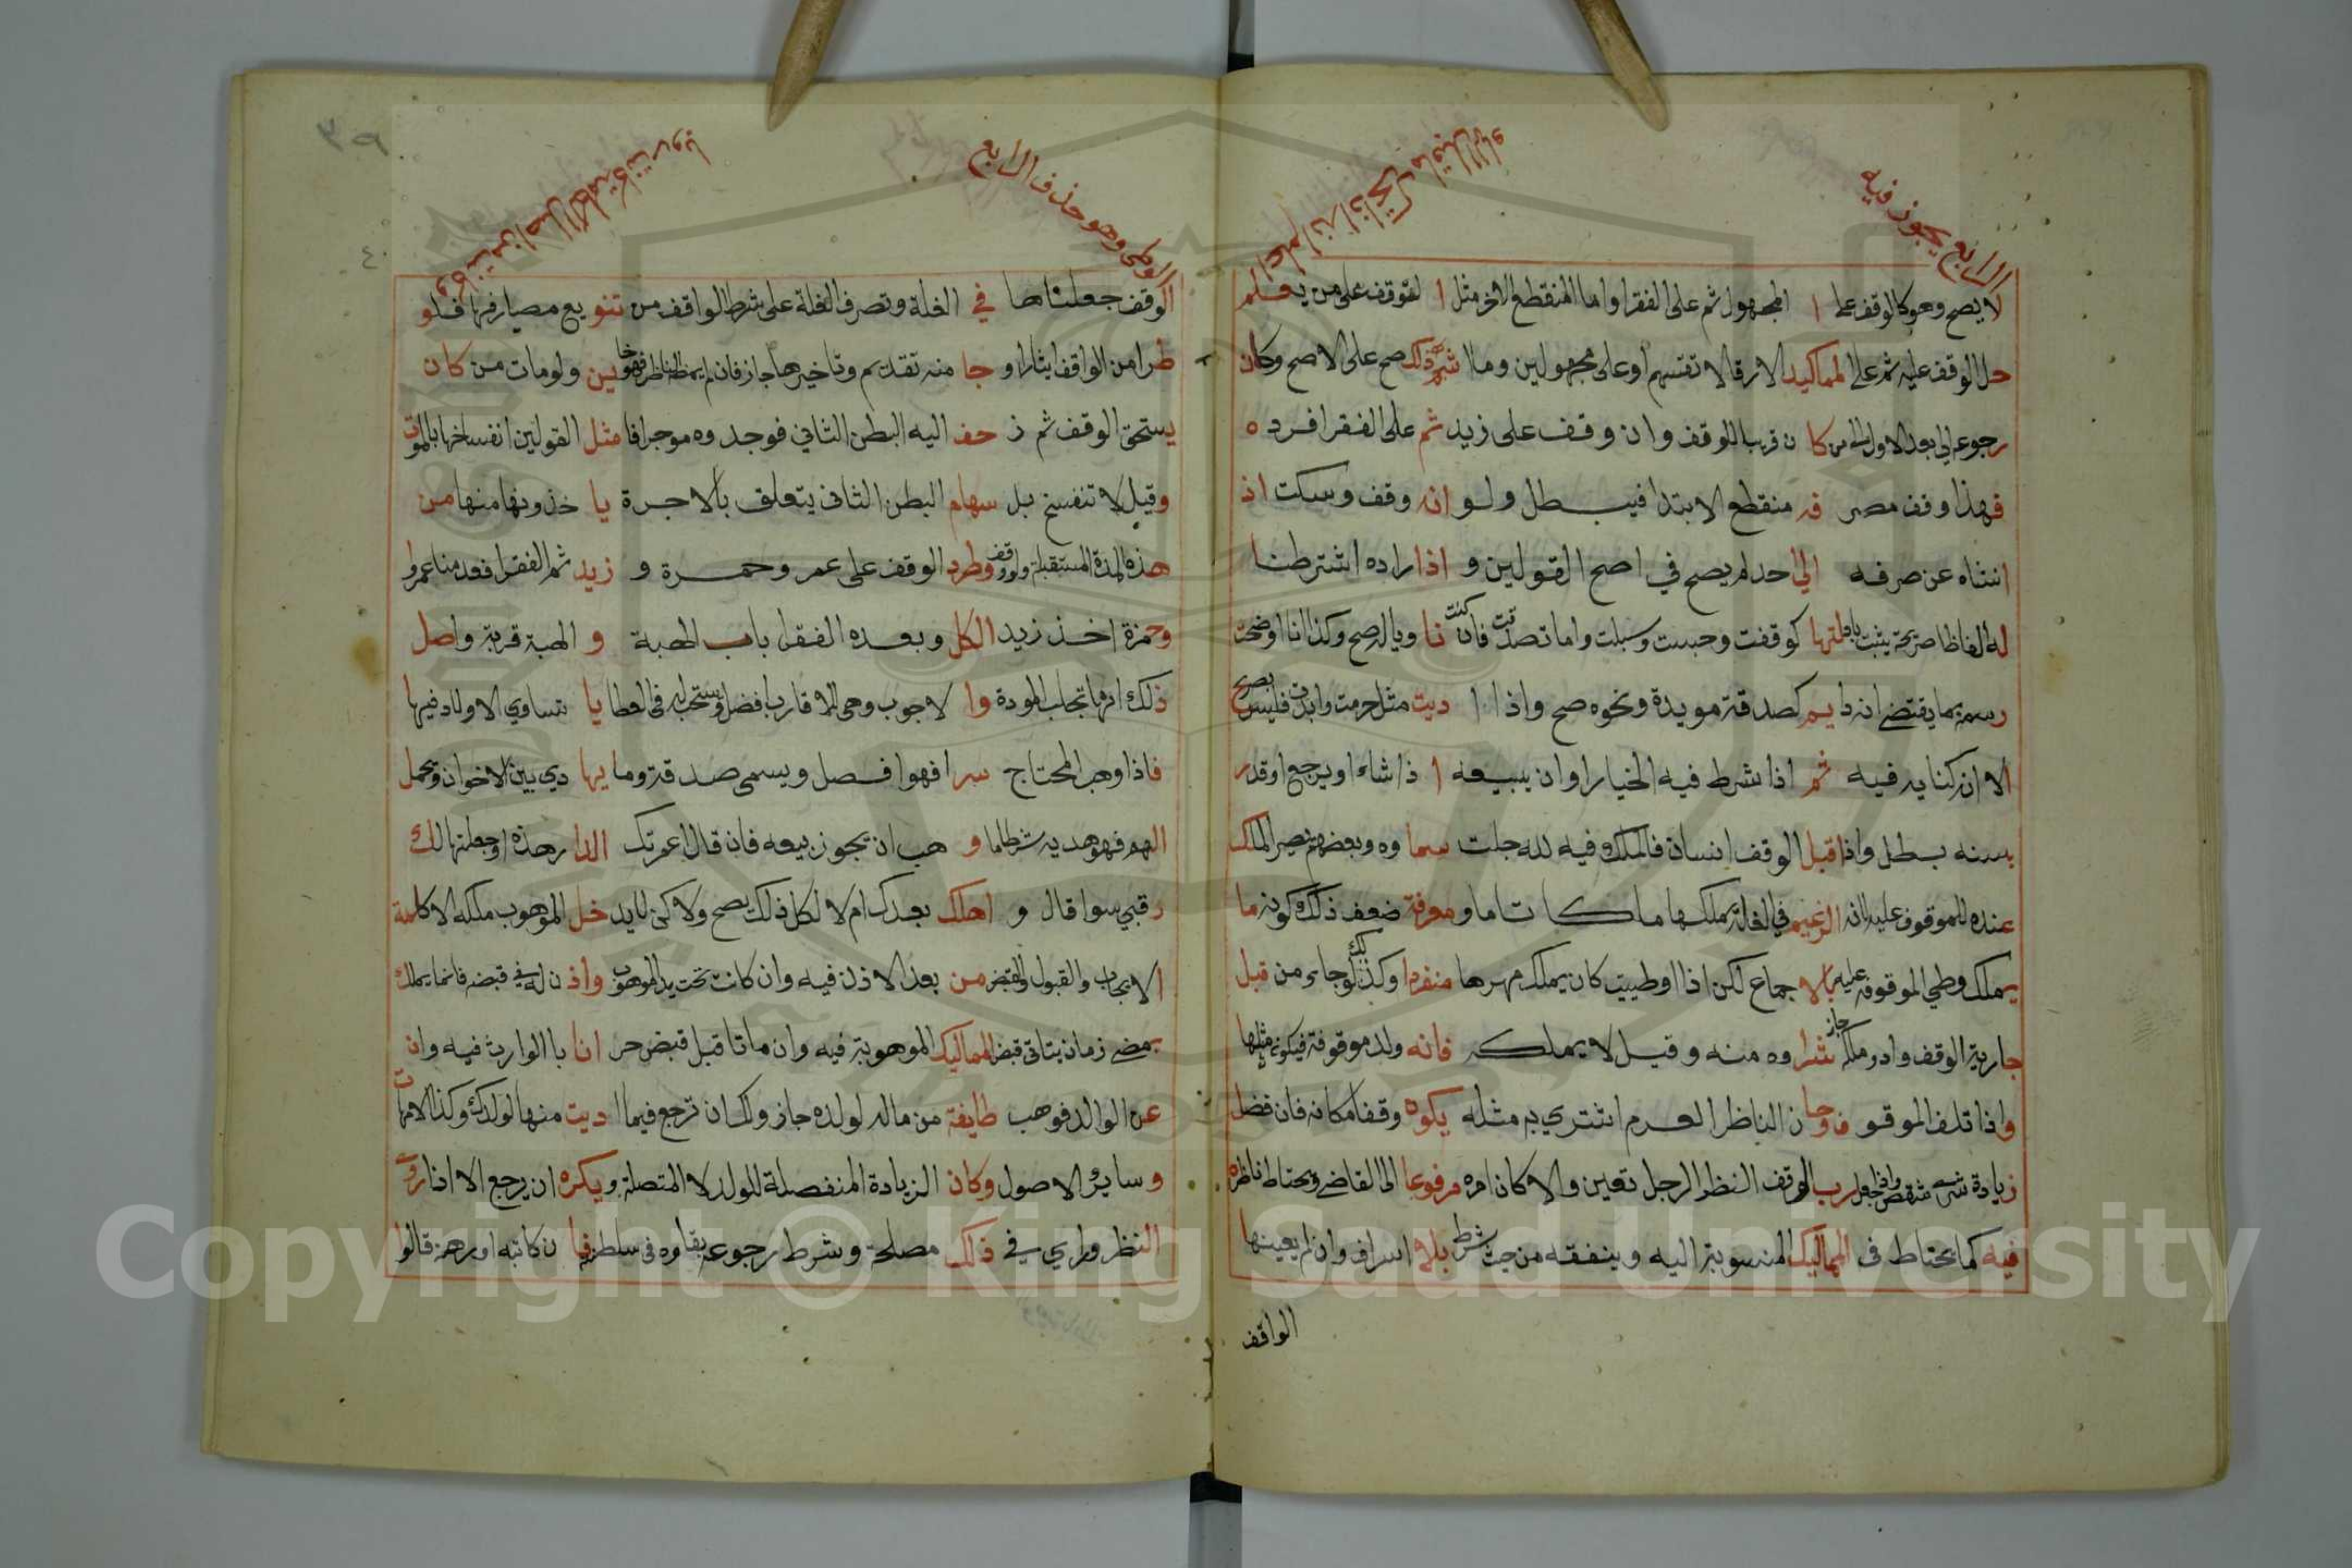 الرابع يجوز فيه
لا يصح وهو كالوقف علي ا المجهول ثم على الفقرا واما المنقطع الاخر مثل ا لقوقف على من يعلم
حل الوقف عليه ثم علي المماكيد الارقا لا تقتسهم او على مجهولين وما ا شبه ذلك صح على الاصح وكان
رجوعه الي بعد الاول الي من كا ن قريبا للوقف وان وقف على زيد ثم على الفقرا فرده
فهذا وقف مصر فه منقطع الابتدا فيبطل ولو انه وقف وسكت اذ
انشاه عن صرفه الي احد لم يصح في اصح القولين و اذا اراده اشترطنا
له الفاظا صريحة يثبت باقلتها كوقفت وحبست وسبلت واما تصدقت فان كنت نا ويا له صح وكذا انا اوضحت
رسمه بما يقتضي انه دا يم كصدقة مويدة ونحوه صح واذا ا ديت مثل حرمت وابدت فليس بصريح
الا انه كنايه فيه ثم اذا شرط فيه الخيار او ان يبيعه ا ذا شاء او يرجع او قدر
بسنه بطل واذا قبل الوقف انسان فالملك فيه لله جلت سما وه وبعضهم يصير الملك
عنده للموقوف عليه لانه الزعيم في الغلة يملكها ملكا تاما و معرفة ضعف ذلك كونه ما
يملك وطي الموقوفه عليه بالا جماع لكن اذا اوطييت كان يملك مهرها منفردا وكذلك لو جاء من قبل
جارية الوقف ولد وملكه جاز شرا وه منه وقيل لا يملكه فانه ولد موقوفة فيكون مثلها
واذا تلف الموقو ف وجا ن الناظر الغرم اشتري به مثله يكون وقفا مكانه فان فضل
زيادة شري شقص واذا جعل رب الوقف النظر لرجل تعين والا كان امره مرفوعا الى القاضي ويحتاط ناظره
فيه كما يحتاط في المماليك المنسوبة اليه وينفقه من حيث شرط بلا اسراف وان لم يعينها
الواقف
٣٩
٤٠
وهو حذف الرابع
الوقف جعلناها في الغلة وتصرف الغلة على شرط الواقف من تنو يع مصارفها فلو
طرا من الواقف ايثار او جا منه تقديم وتاخير ها جاز فان لم يحفظ الناظر فهو خا ين ولو مات من كان
يستحق الوقف ثم ز حف اليه البطن الثاني فوجد وه موجرا فا مثل القولين انفساخها بالموت
وقيل لا تنفسخ بل سهام البطن الثاني يتعلق بالاجرة يا خذونها منها من
هذه المدة المستقبلة ولو وقف وطرد الوقف على عمر وحمزة و زيد ثم الفقرا فعدمنا عمرا
وحمزة اخذ زيد الكل وبعده الفقرا باب الهبة و الهبة قربة واصل
ذلك انها تجلب المودة وا لاجوب وهي للاقارب افضل ويستحب له في العطا يا تساوي الاولاد فيها
فاذا وهب المحتاج سرا فهو افضل ويسمى صدقة وما يها دي بين الاخوان ويحمل
اليهم فهو هديه شرطها و هب ان يجوز بيعه فان قال اعمرتك الدا ر هذه او جعلتها لك
رقبي سوا قال و اهلك بعدك ام لا لكل ذلك يصح ولا كن لا يد خل الموهوب ملكه الا كلمة
الايجاب والقبول والقبض من بعد الاذن فيه وان كانت تحت يد الموهوب واذ ن له في قبضه فانما يملك
بمضي زمان يتاتى قبض المماليك الموهوبة فيه وان ماتا قبل قبض حر انا با الوارث فيه وان
عن الوالد فوهب طايفة من ماله لولده جاز وله ان ترجع فيما ا ديت منها لولدك وكذا الامهات
وساير الاصول وكان الزيادة المنفصلة للولد لا المتصلة ويكره ان يرجع الا اذا رك
النظر وراي في ذلك مصلحة وشرط رجوعه بقاوه في سلطنته فا ن كاتبه او رهنه قالوا
Copyright © King Saud University